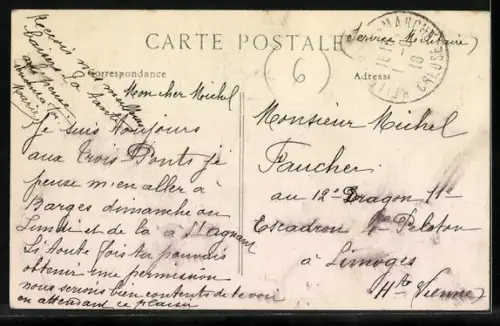 CARTE POSTALE
Correspondance
Adresse
(Service Militaire)
6
Mon cher Michel
Je suis toujours
aux Trois Ponts je
pense m'en aller à
Barges dimanche ou
Lundi et de là à St Agnant
Si toute fois tu pouvais
obtenir une permission
nous serions bien contents de te voir
en attendant ce plaisir
Recois nos meilleurs
baisers
Marie
Monsieur Michel
Faucher
au 12e Dragon 11e
Escadron Peloton
à Limoges
Hte Vienne